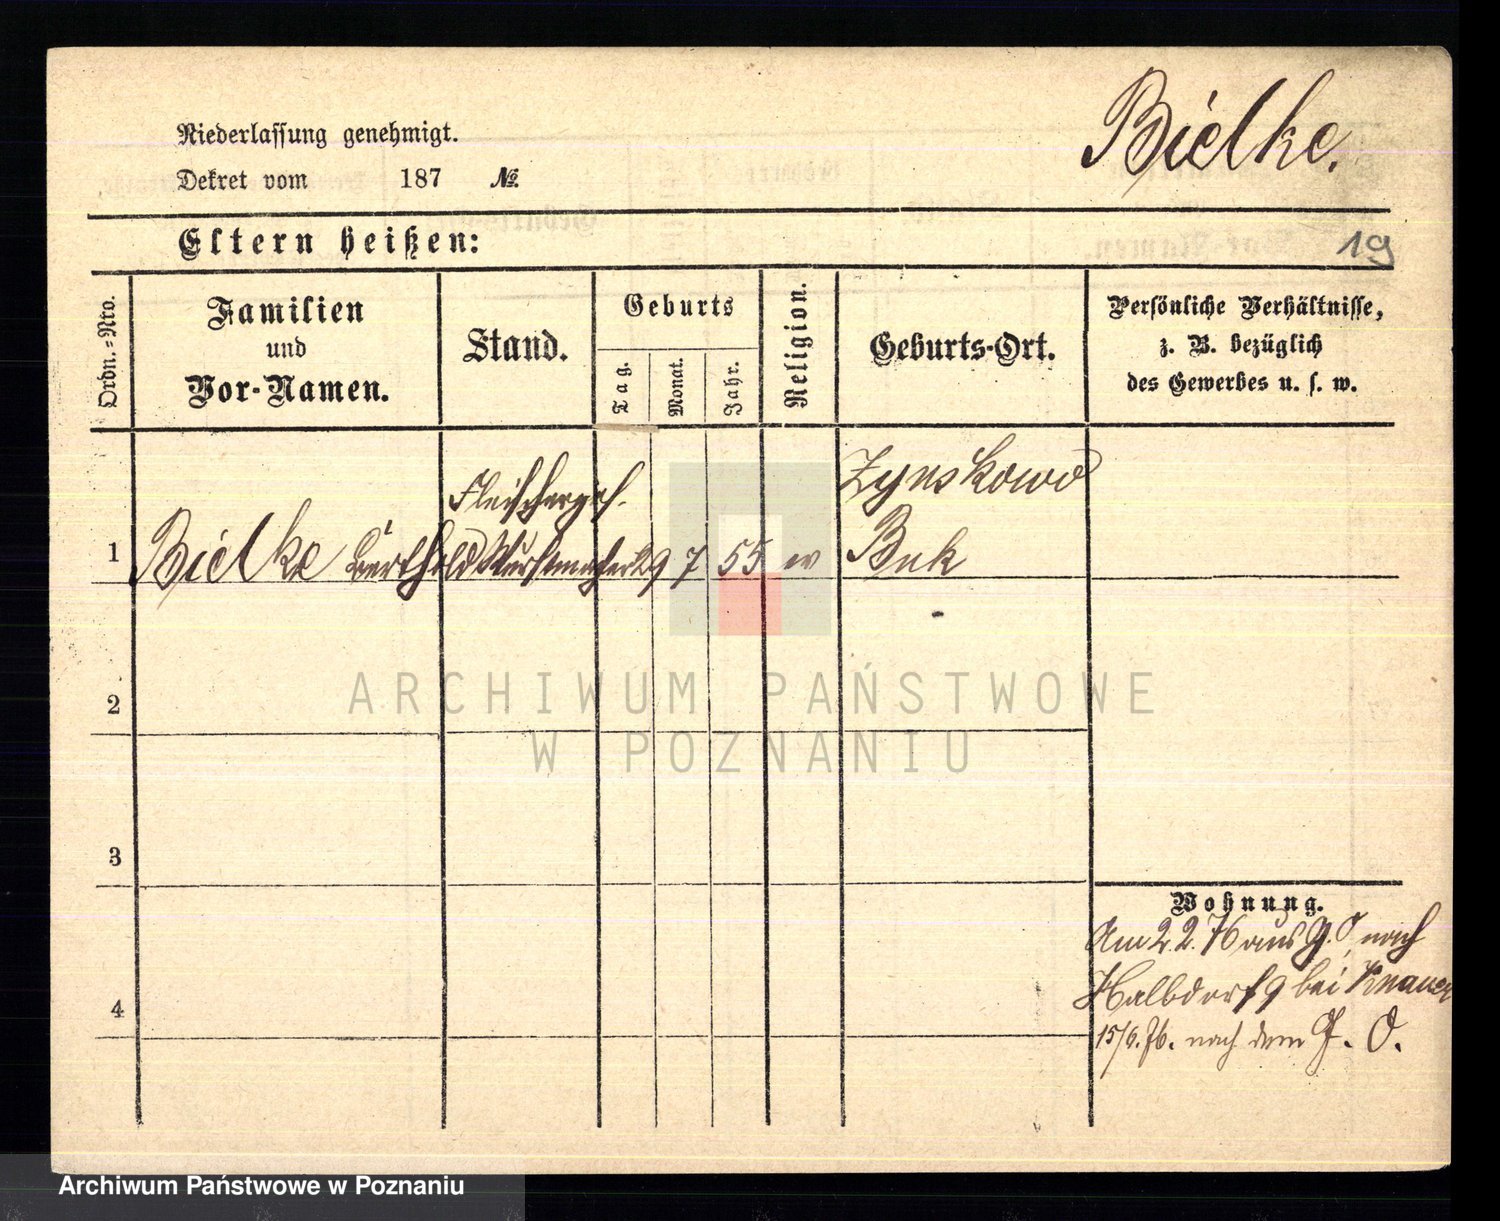 Bielke.
Niederlassung genehmigt.
Dekret vom 187 №
Eltern heißen:
19
Ordn.-Nro.
Familien
und
Vor-Namen.
Stand.
Geburts
Tag.
Monat.
Jahr.
Religion.
Geburts-Ort.
Persönliche Verhältnisse,
z. B. bezüglich
des Gewerbes u. s. w.
Fleischerges. Zynskowo
1 Bielke Berthold Wurstmacher 29 7 55 ev Buk
2
3
4
Wohnung.
Am 2.2.76 aus G. O. nach
Halbdorf 9 bei Knauer
15/6. 76. nach dem G. O.
ARCHIWUM PAŃSTWOWE
W POZNANIU
Archiwum Państwowe w Poznaniu